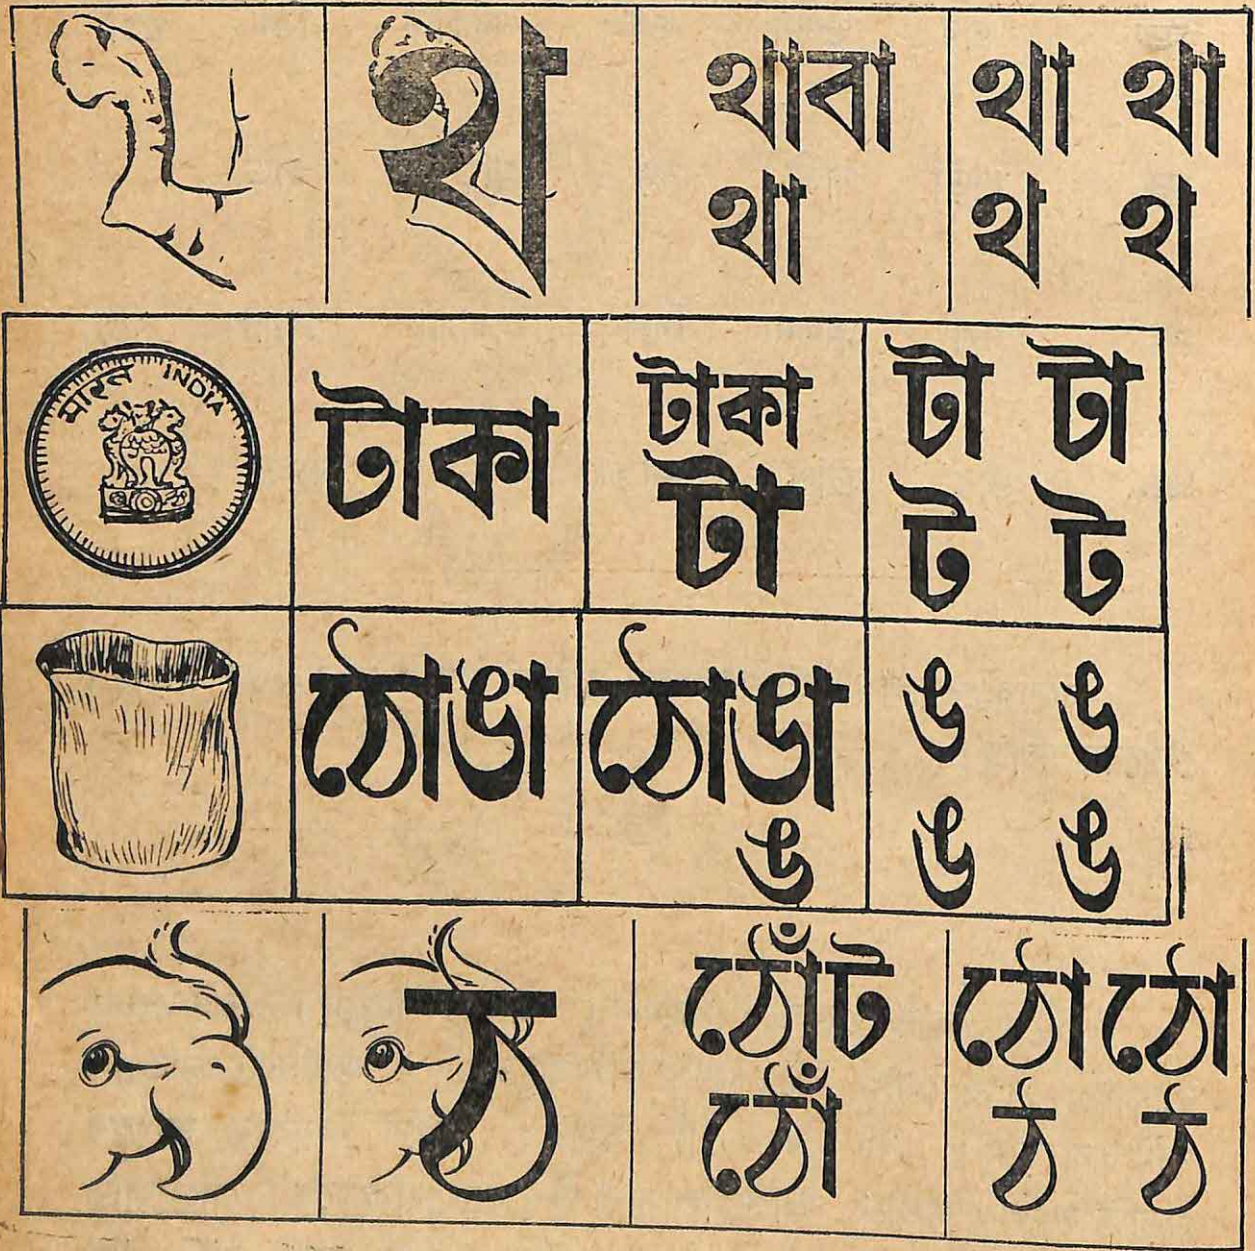 থ থাবা থা থা
থা থ থ
भारत INDIA
টাকা টাকা টা টা
টা ট ট
ঠোঙা ঠোঙা ঙ ঙ
ঙ ঙ ঙ
ঠ ঠোঁট ঠো ঠো
ঠোঁ ঠ ঠ